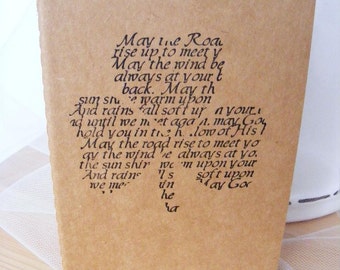 May the Road
rise up to meet y
May the wind be
always at your b
back. May th
sun shine warm upon
And rains fall soft upon your
nd until we meet again, may Go
hold you in the hollow of His
May the road rise to meet yo
ay the wind be always at yo
the sun shin warm upon your
And rains ll s soft upon
we mee in May Go
he
ha